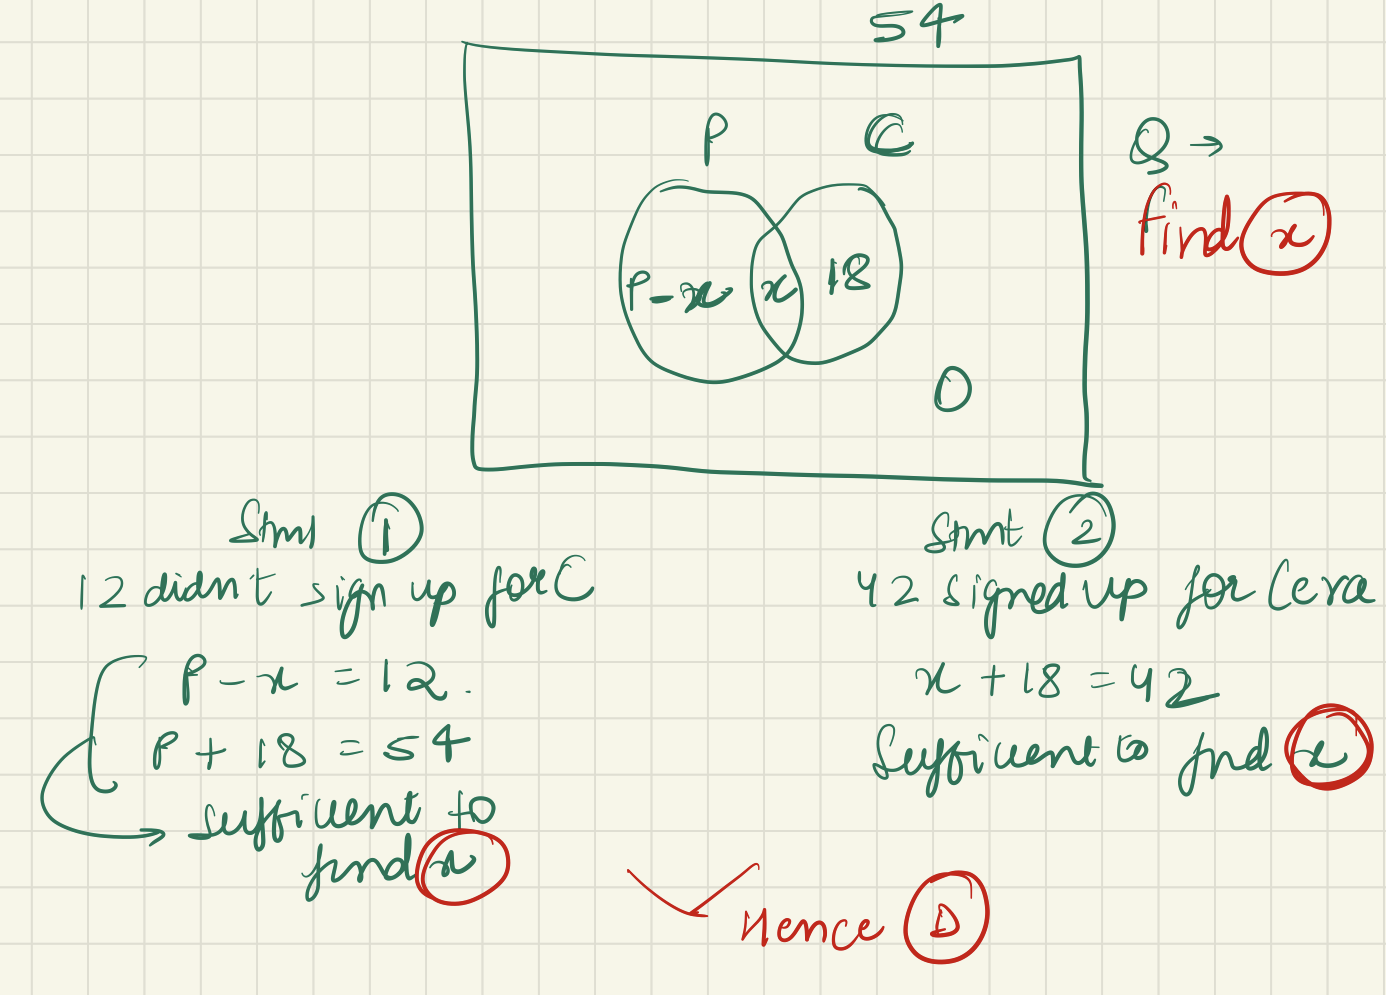 54
P C
Q →
find x
P-x x 18
0
Stmt 1
12 didn't sign up for C
P - x = 12.
P + 18 = 54
sufficient to
find x
Stmt 2
42 signed up for Cera
x + 18 = 42
Sufficient to find x
Hence D